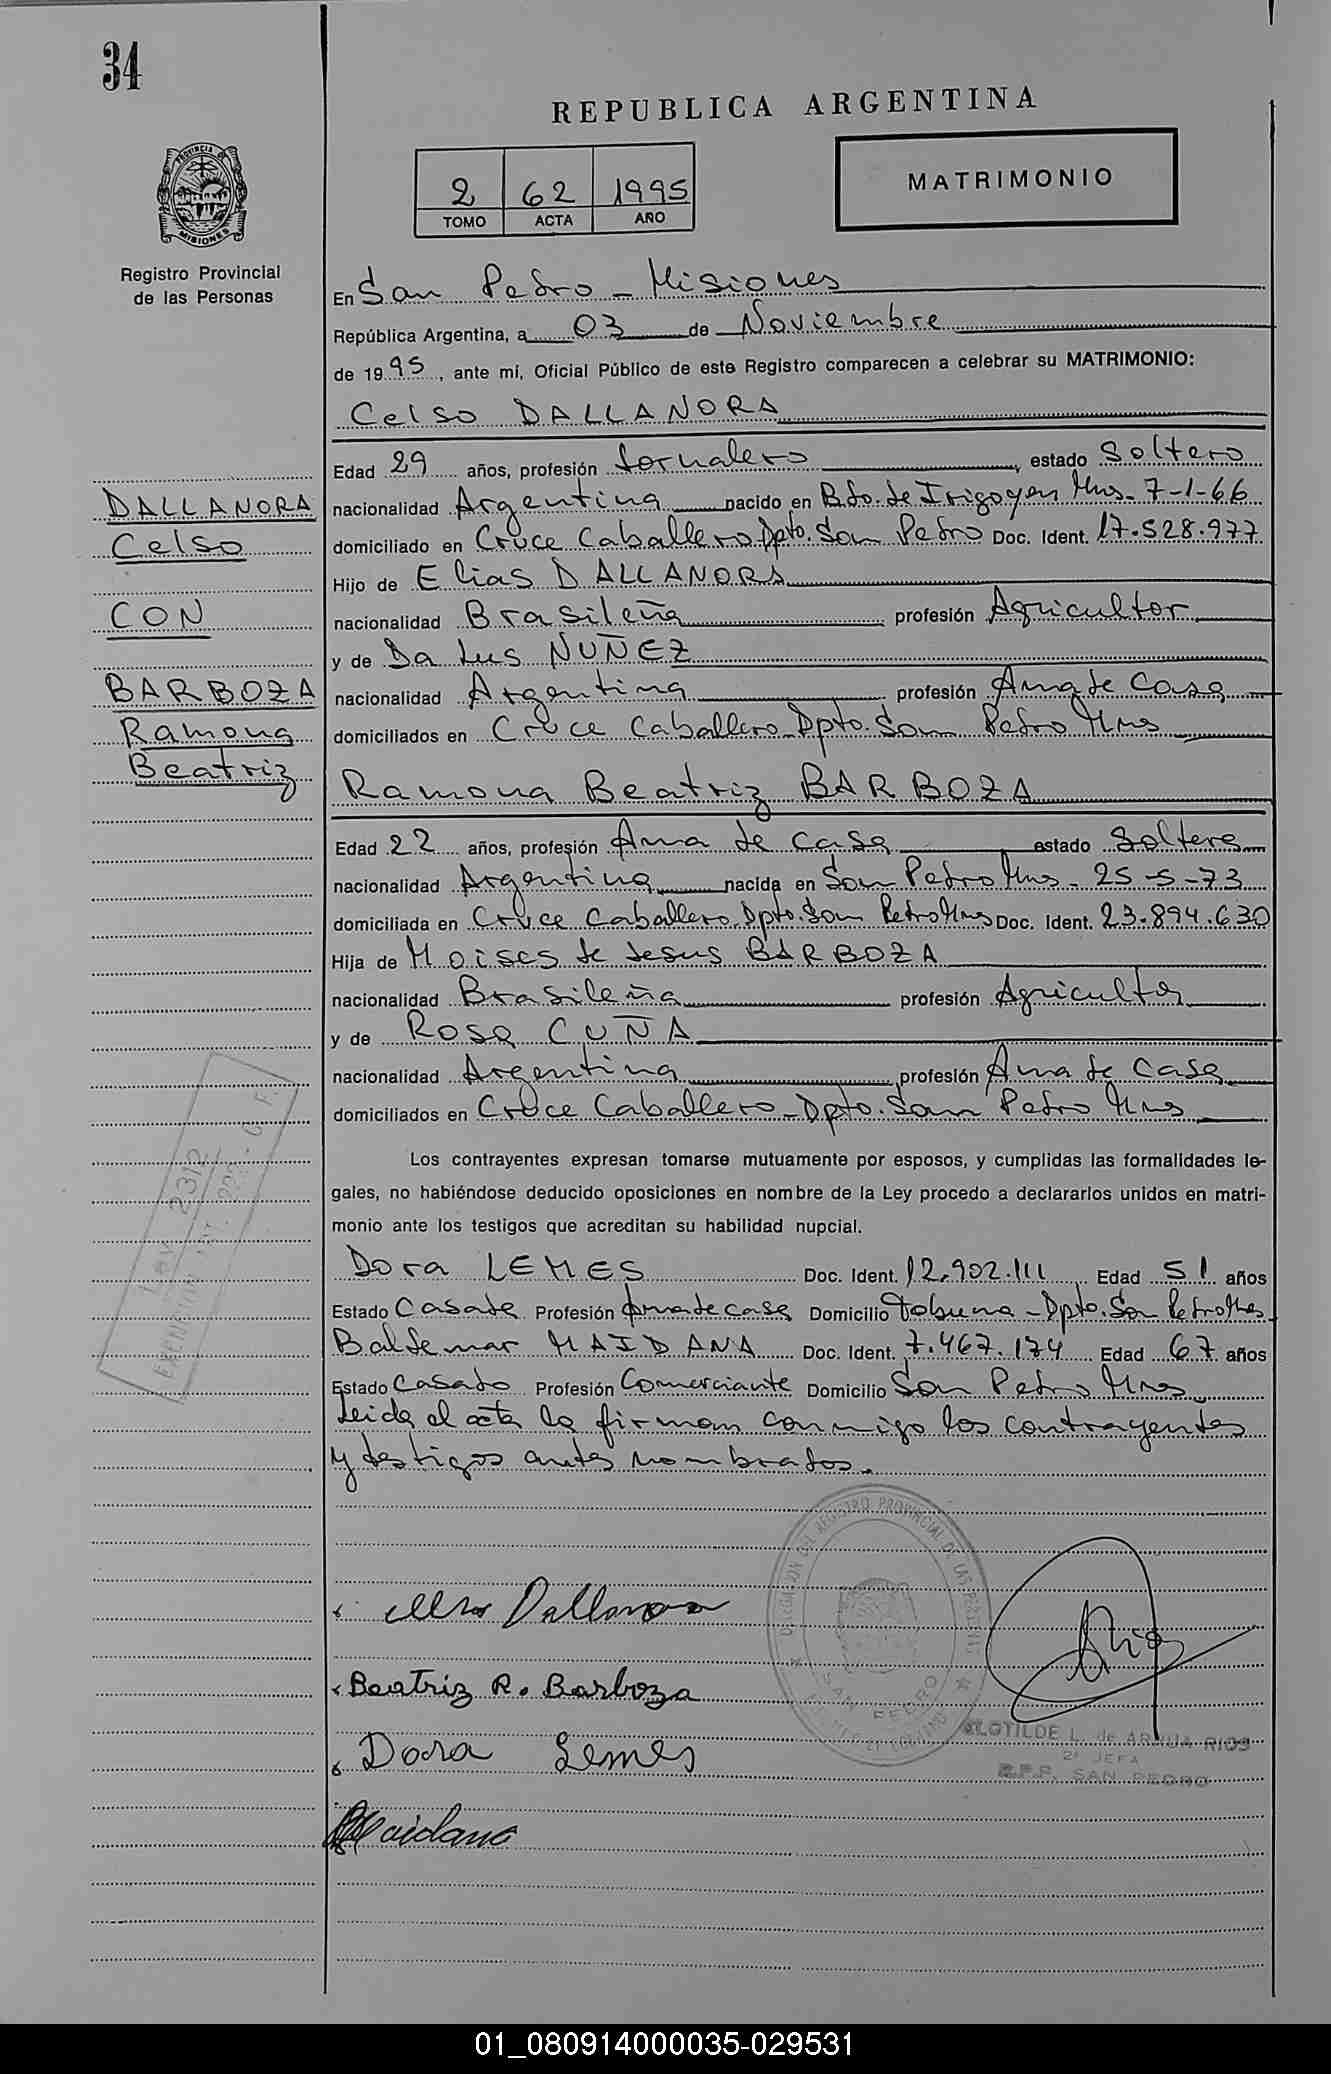 34
REPUBLICA ARGENTINA
2 62 1995
TOMO ACTA AÑO
MATRIMONIO
PROVINCIA DE MISIONES
Registro Provincial
de las Personas
En San Pedro - Misiones
República Argentina, a 03 de Noviembre
de 1995, ante mí, Oficial Público de este Registro comparecen a celebrar su MATRIMONIO:
Celso DALLANORA
Edad 29 años, profesión Jornalero, estado Soltero
nacionalidad Argentina nacido en Bdo. de Irigoyen Mns - 7-1-66
domiciliado en Cruce Caballero Dpto. San Pedro Doc. Ident. 17.528.977
Hijo de Elias DALLANORA
nacionalidad Brasileña profesión Agricultor
y de Da Lus NUÑEZ
nacionalidad Argentina profesión Ama de Casa
domiciliados en Cruce Caballero - Dpto. San Pedro Mns
Ramona Beatriz BARBOZA
Edad 22 años, profesión Ama de Casa estado Soltera
nacionalidad Argentina nacida en San Pedro Mns - 25-5-73
domiciliada en Cruce Caballero Dpto. San Pedro Mns Doc. Ident. 23.894.630
Hija de Moises de Jesus BARBOZA
nacionalidad Brasileña profesión Agricultor
y de Rosa CUÑA
nacionalidad Argentina profesión Ama de Casa
domiciliados en Cruce Caballero - Dpto. San Pedro Mns
Los contrayentes expresan tomarse mutuamente por esposos, y cumplidas las formalidades le-
gales, no habiéndose deducido oposiciones en nombre de la Ley procedo a declararlos unidos en matri-
monio ante los testigos que acreditan su habilidad nupcial.
Dora LEMES Doc. Ident. 12.902.111 Edad 51 años
Estado Casada Profesión Ama de casa Domicilio Tobuna - Dpto. San Pedro Mns
Baldemar MAIDANA Doc. Ident. 7.467.174 Edad 67 años
Estado Casado Profesión Comerciante Domicilio San Pedro Mns
Leida el acta la firman conmigo los contrayentes
y testigos antes nombrados.
DALLANORA
Celso
CON
BARBOZA
Ramona
Beatriz
LEY 2312
DELEGACION DEL REGISTRO PROVINCIAL DE LAS PERSONAS
SAN PEDRO
Dallanora
Beatriz R. Barboza
Dora Lemes
Maidana
CLOTILDE L. de ARRUA RIOS
2ª JEFA
R.P.P. SAN PEDRO
01_080914000035-029531